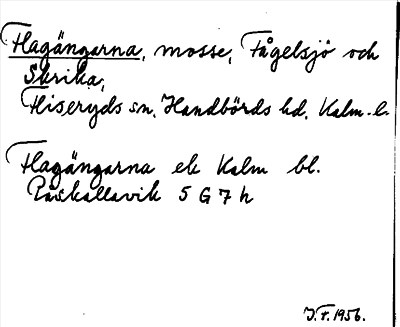 Flagängarna, mosse, Fågelsjö och
Skrika,
Fliseryds sn, Handbörds hd, Kalm. l.
Flagängarna ek Kalm bl.
Påskallavik 5 G 7 h
J.F. 1956.